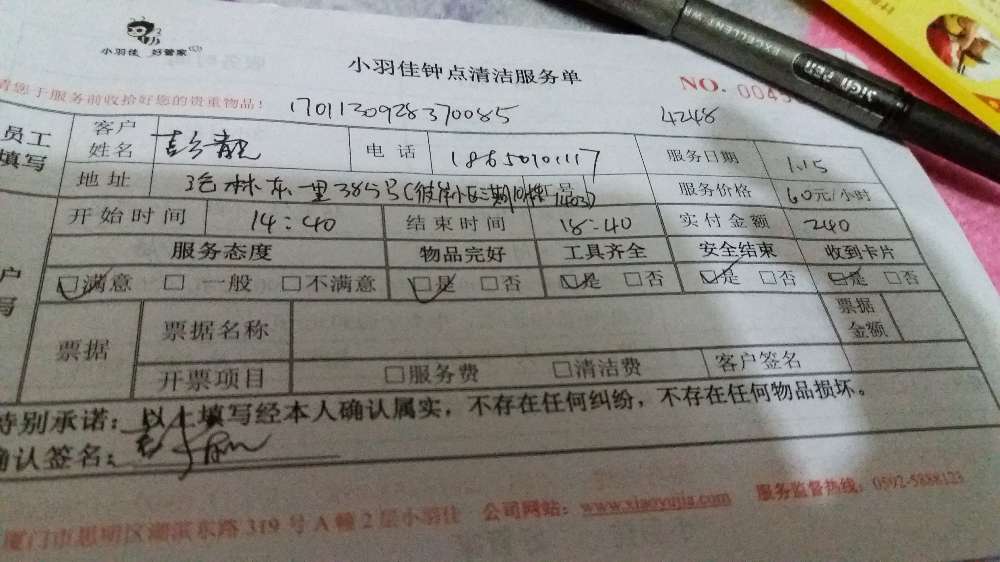 小羽佳 好管家
小羽佳钟点清洁服务单
NO. 0045
请您于服务前收拾好您的贵重物品!
1701130928370085 4248
员工填写 客户姓名 电话 18650701117 服务日期 1.15
地址 服务价格 60元/小时
开始时间 14:40 结束时间 18:40 实付金额 240
服务态度 物品完好 工具齐全 安全结束 收到卡片
☑满意 □一般 □不满意 ☑是 □否 ☑是 □否 ☑是 □否 ☑是 □否
票据 票据名称 票据金额
开票项目 □服务费 □清洁费 客户签名
特别承诺:以上填写经本人确认属实,不存在任何纠纷,不存在任何物品损坏。
确认签名:
厦门市思明区湖滨东路319号A幢2层小羽佳 公司网站:www.xiaoyujia.com 服务监督热线:0592-5888123